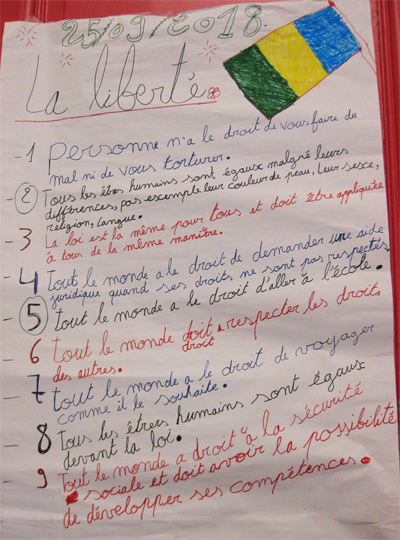 25/09/2018.
La liberté
- 1 Personne n'a le droit de vous faire du
mal ni de vous torturer.
- 2 Tous les êtres humains sont égaux malgré leurs
différences, pas exsemple leur couleur de peau, leur sesce,
religion, langue.
- 3 La loi est la même pour tous et doit être appliquée
à tous de la même manière.
- 4 Tout le monde a le droit de demander une aide
juridique quand ses droits ne sont pas respectés
- 5 tout le monde a le droit d'aller à l'école.
- 6 tout le monde doit respecter les droits
droit
des autres.
- 7 tout le monde a le droit de voyager
comme il le souhaite.
- 8 Tous les êtres humains sont égaux
devant la loi.
- 9 Tout le monde a droit à la sécurité
sociale et doit avoir la possibilité
de développer ses compétences.